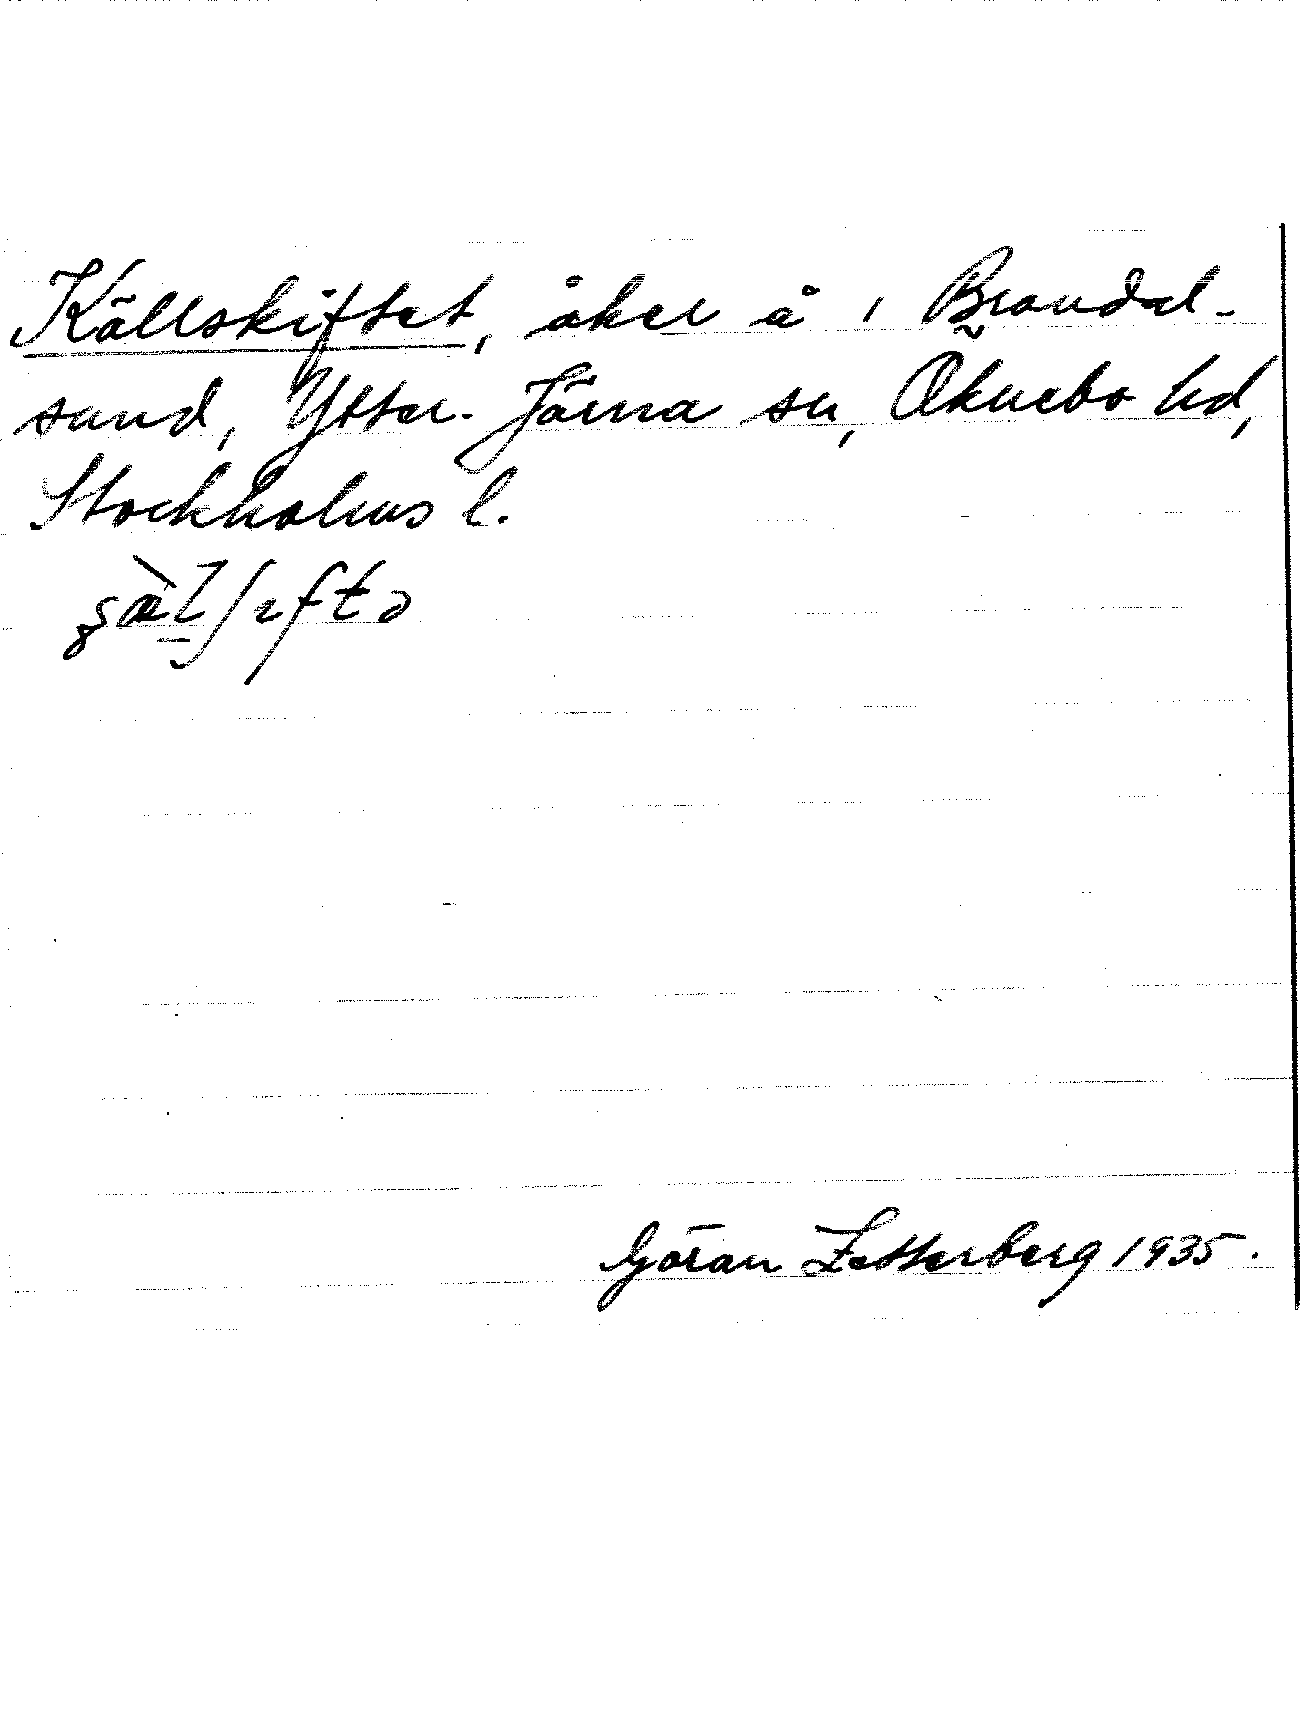 Källskiftet, åker å 1 Brandal-
sund, Ytter-Järna sn, Öknebo hd,
Stockholms l.
Göran Zetterberg 1935.